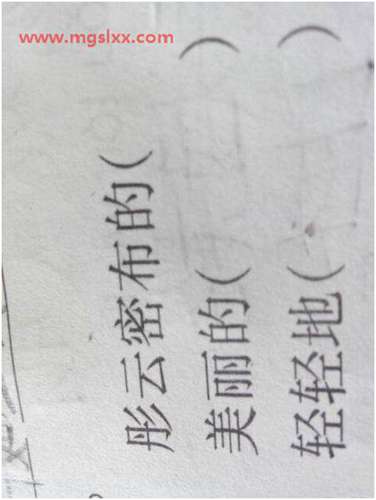 www.mgslxx.com
彤云密布的(
美丽的( )
轻轻地( )